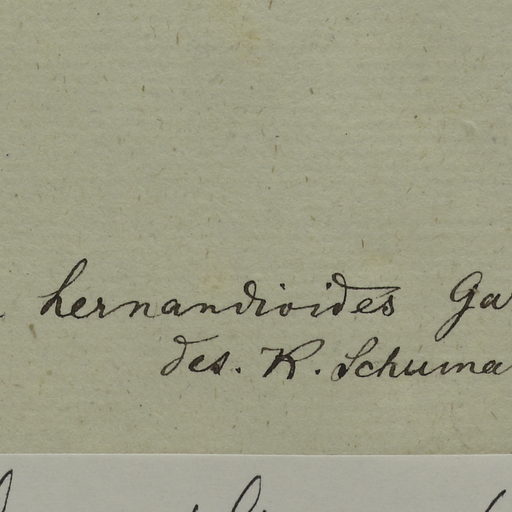 hernandioides Ga
des. K. Schuma